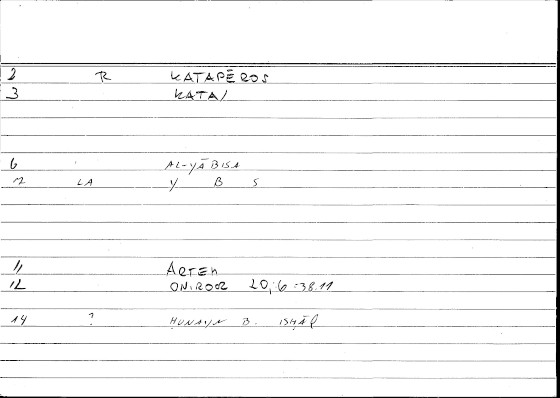 2 R KATAPĒROS
3 KATA/
6 AL-YĀBISA
7 LA Y B S
11 ARTEM
12 ONIROCR 20,6:38.11
14 ? ḤUNAYN B. ISḤĀQ